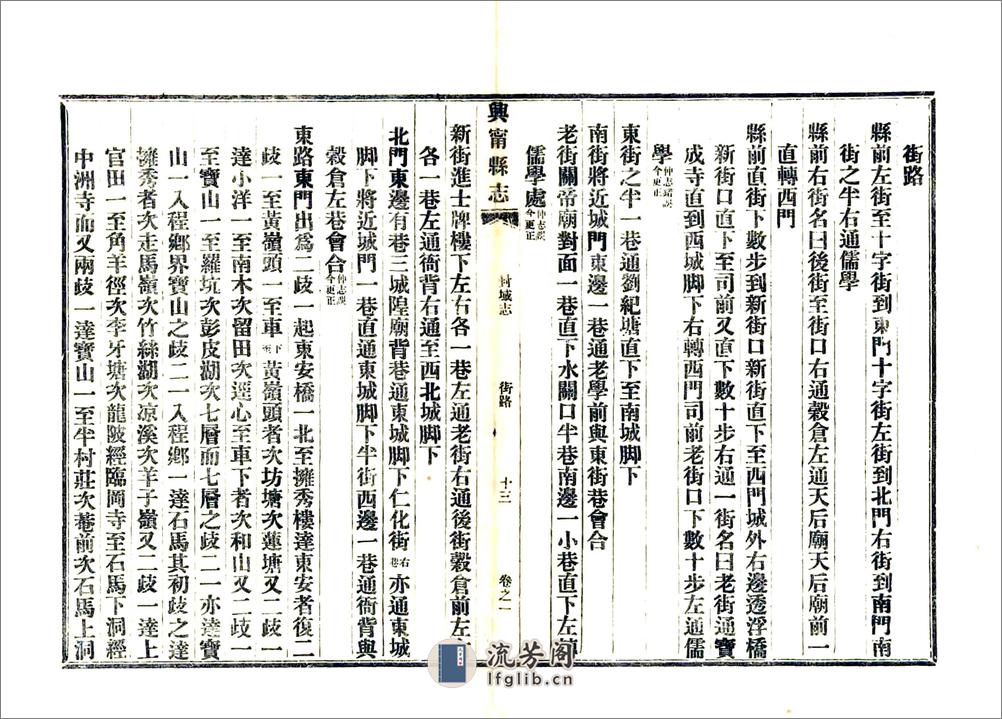 街路
縣前左街至十字街到東門十字街左街到北門右街到南門南
街之半右通儒學
縣前右街名曰後街至街口右通穀倉左通天后廟天后廟前一
直轉西門
縣前直街下數步到新街口新街直下至西門城外右邊透浮橋
新街口直下至司前又直下數十步右通一街名曰老街通寶
成寺直到西城脚下右轉西門司前老街口下數十步左通儒
學仲志諸誤今更正
東街之半一巷通劉紀塘直下至南城脚下
南街將近城門東邊一巷通老學前與東街巷會合
老街關帝廟對面一巷直下水關口半巷南邊一小巷直下左
儒學處仲志誤今更正
興甯縣志
封域志
街路
十三
卷之一
新街進士牌樓下左右各一巷左通老街右通後街穀倉前左
各一巷左通衙背右通至西北城脚下
北門東邊有巷三城隍廟背巷通東城脚下仁化街右巷亦通東城
脚下將近城門一巷直通東城脚下半街西邊一巷通衙背與
穀倉左巷會合仲志誤今更正
東路東門出爲二歧一起東安橋一北至擁秀樓達東安者復二
歧一至黃嶺頭一至車下黃嶺頭者次坊塘次蓮塘又二歧一
達小洋一至南木次留田次逕心至車下者次和山又二歧一
至寶山一至羅坑次彭皮湖次七層而七層之歧二一亦達寶
山一入程鄉界寶山之歧二一入程鄉一達石馬其初歧之達
擁秀者次走馬嶺次竹絲湖次凉溪次羊子嶺又二歧一達上
官田一至角羊徑次李牙塘次龍陂經臨岡寺至石馬下洞經
中洲寺而又兩歧一達寶山一至半村莊次菴前次石馬上洞
流芳阁
lfglib.cn